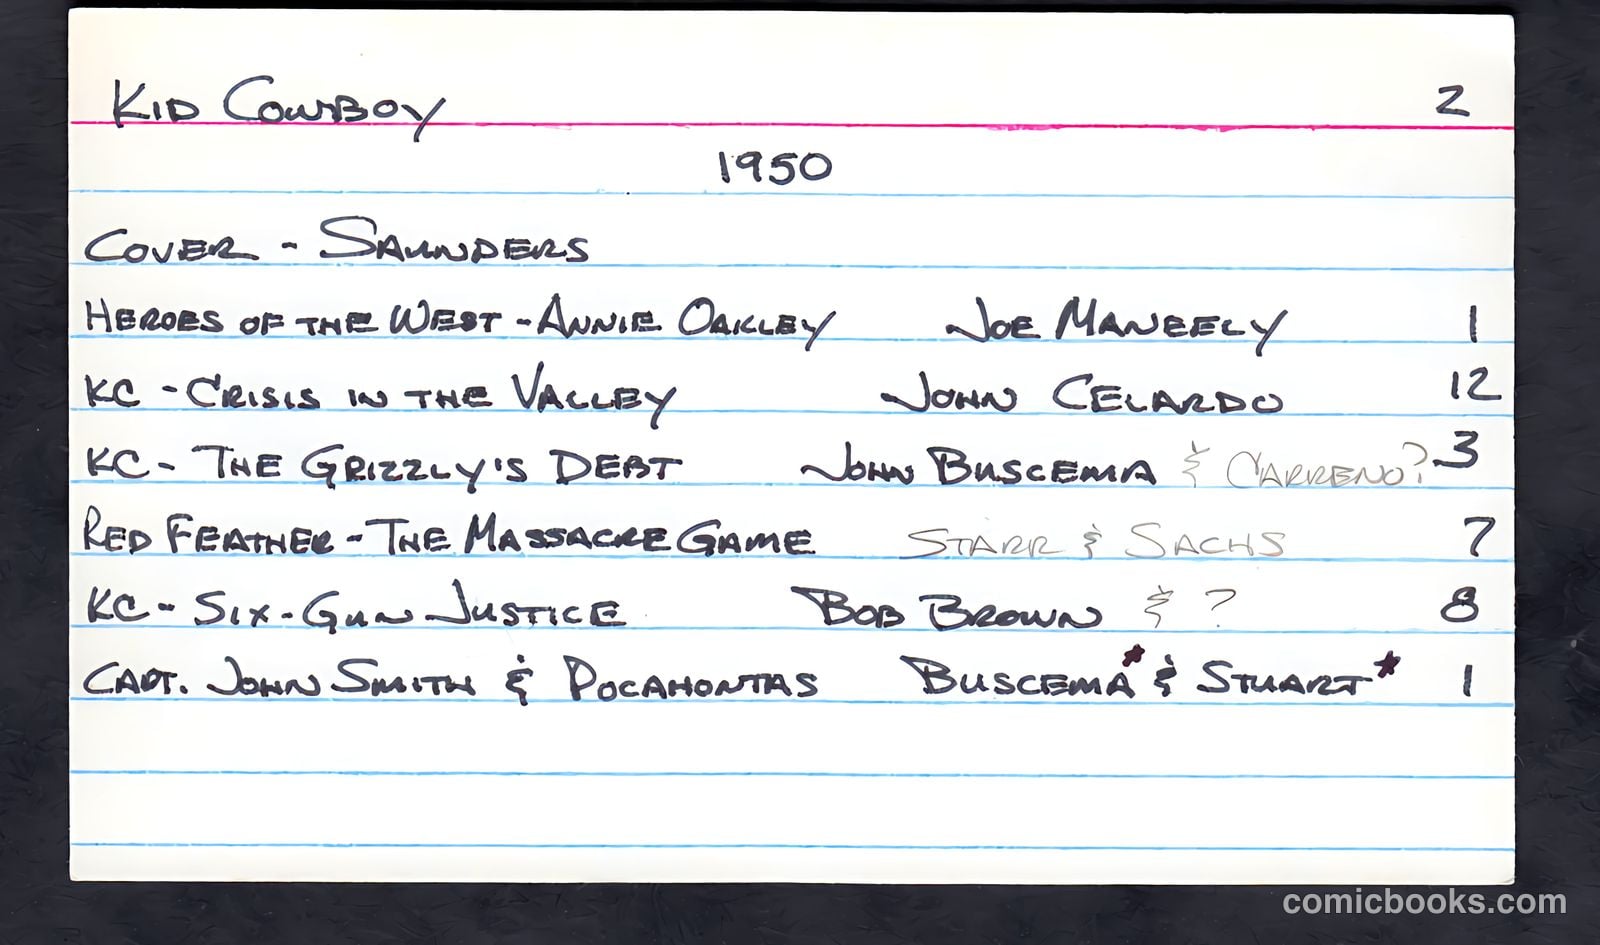 KID COWBOY 2
1950
COVER - SAUNDERS
HEROES OF THE WEST - ANNIE OAKLEY JOE MANEELY 1
KC - CRISIS IN THE VALLEY JOHN CELARDO 12
KC - THE GRIZZLY'S DEBT JOHN BUSCEMA & CARRENO? 3
RED FEATHER - THE MASSACRE GAME STARR & SACHS 7
KC - SIX-GUN JUSTICE BOB BROWN & ? 8
CAPT. JOHN SMITH & POCAHONTAS BUSCEMA* & STUART* 1
comicbooks.com